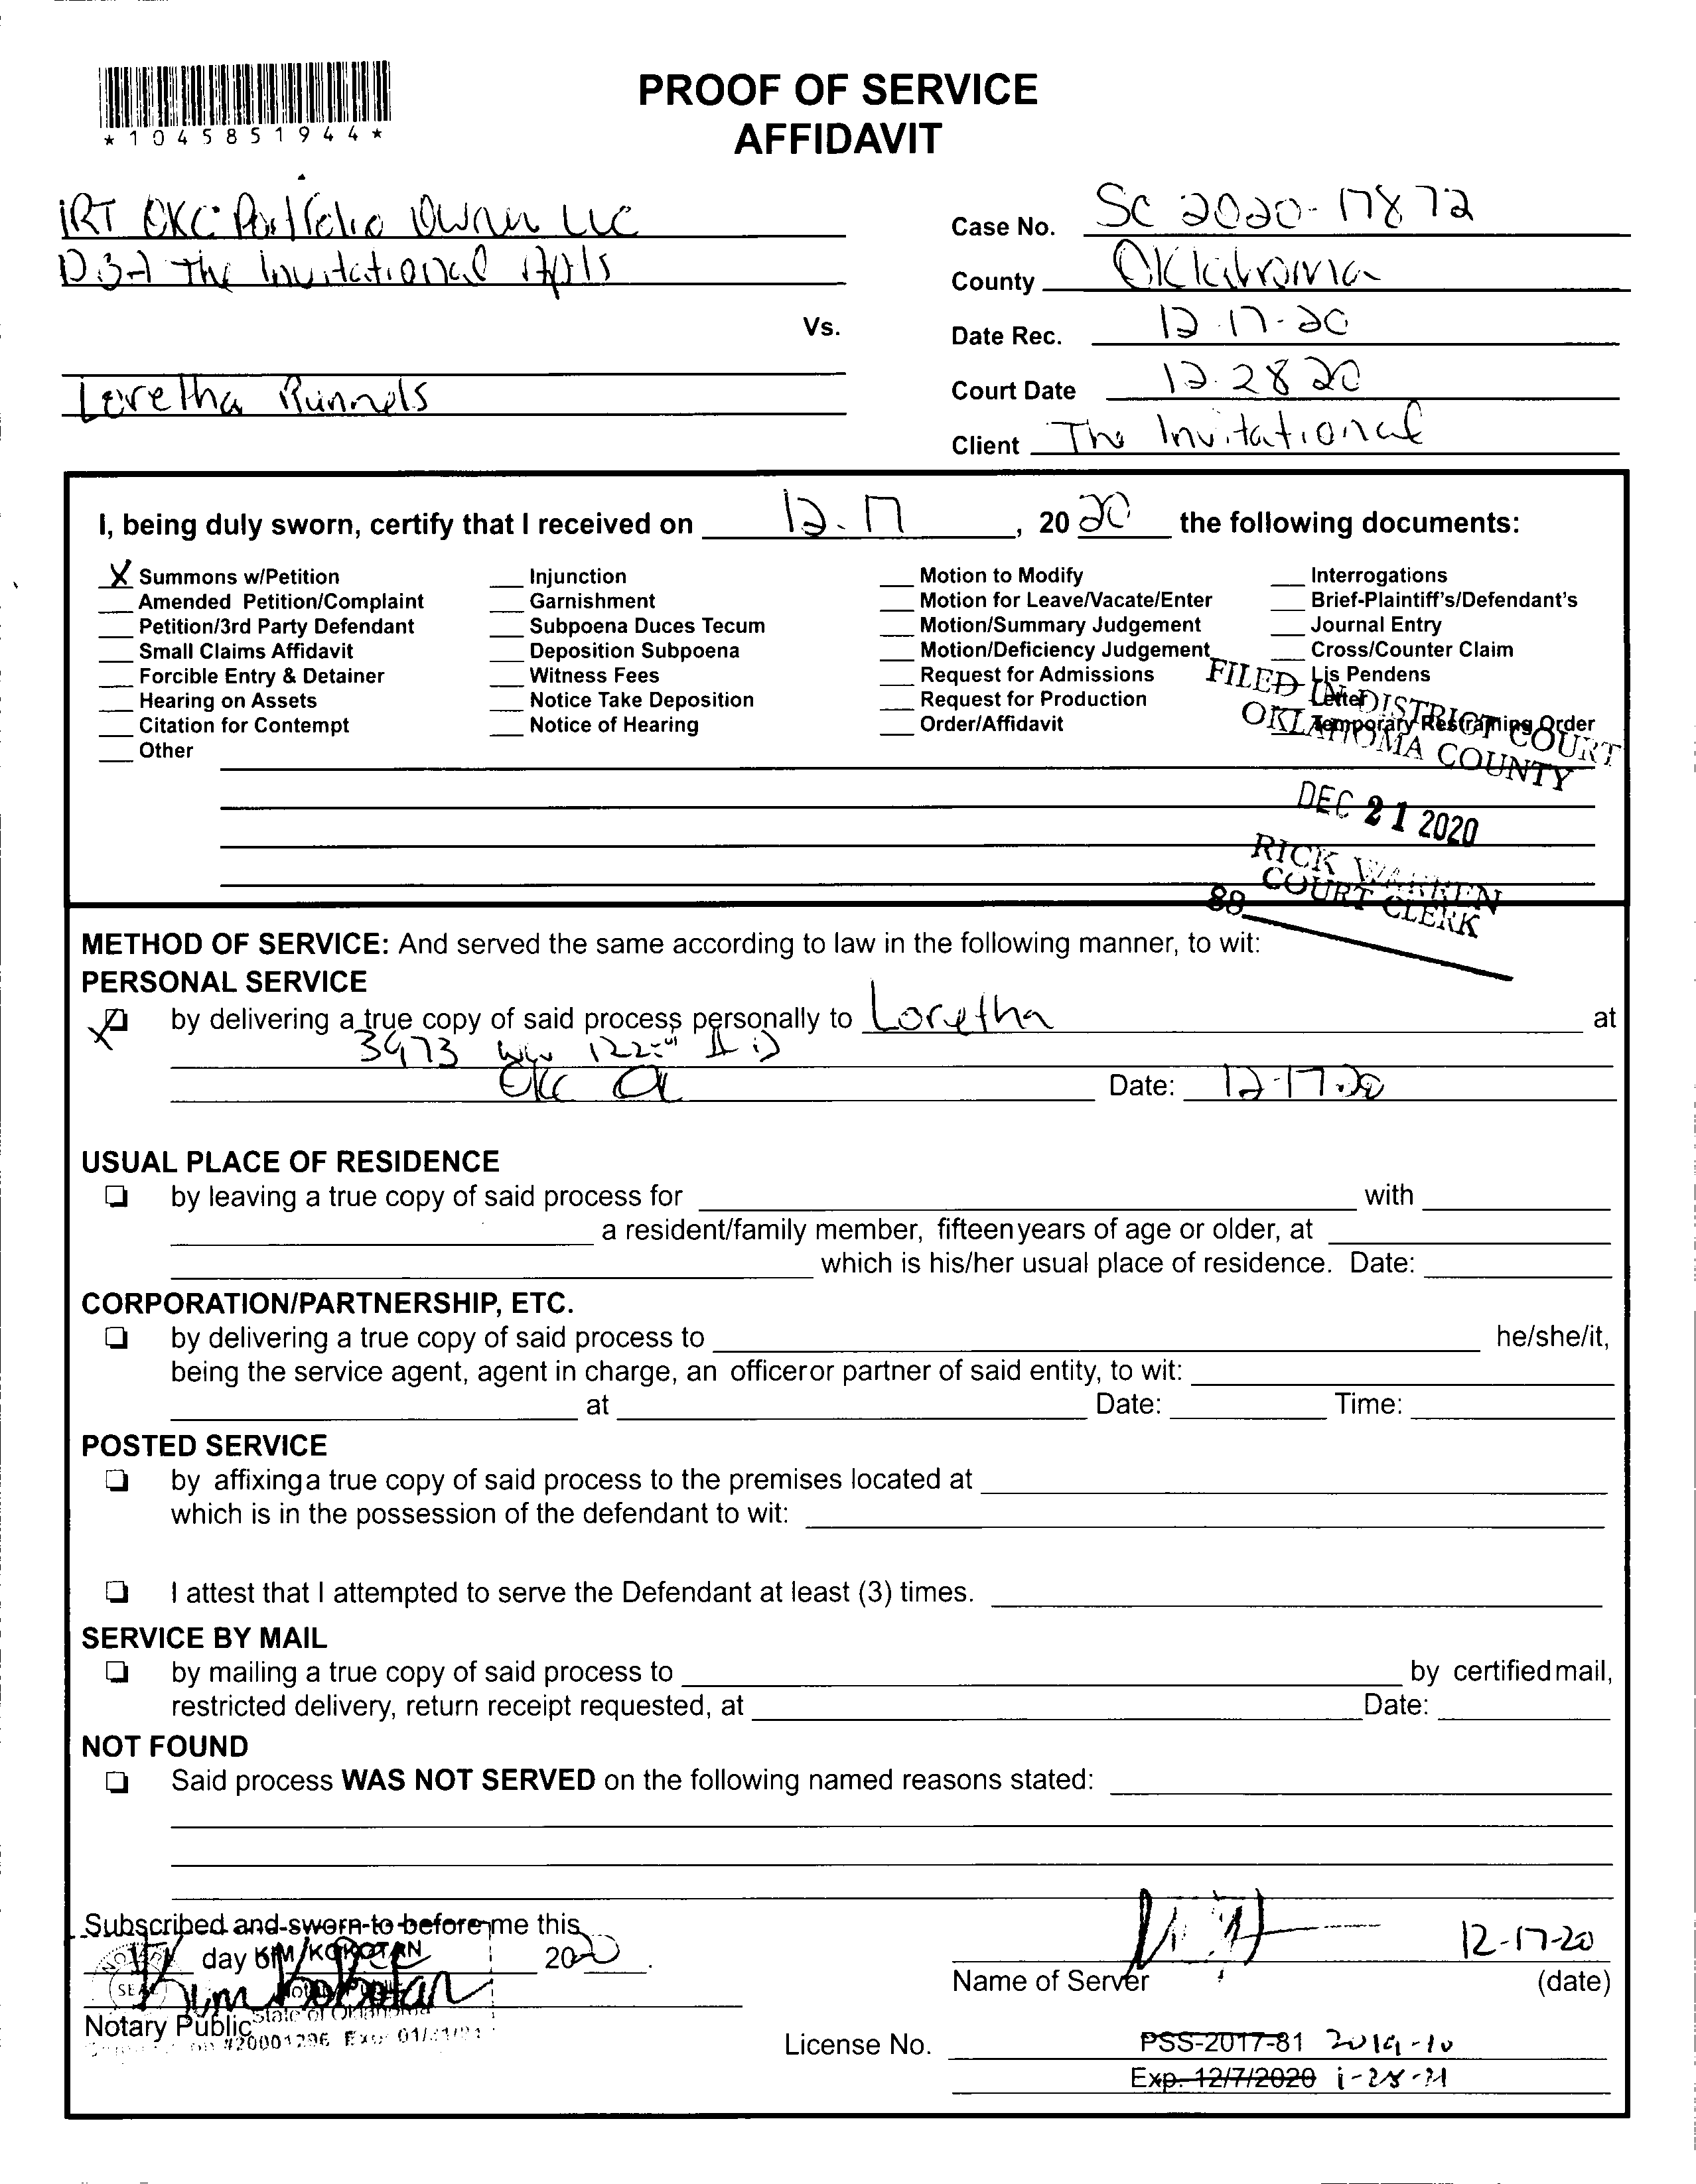 *1045851944*
PROOF OF SERVICE
AFFIDAVIT
IRT OKC Portfolio Owner LLC
DBA The Invitational Apts
Vs.
Loretha Runnels
Case No. SC 2020-17872
County Oklahoma
Date Rec. 12-17-20
Court Date 12-28 20
Client The Invitational
I, being duly sworn, certify that I received on 12-17, 20 20 the following documents:
X Summons w/Petition
Amended Petition/Complaint
Petition/3rd Party Defendant
Small Claims Affidavit
Forcible Entry & Detainer
Hearing on Assets
Citation for Contempt
Other
Injunction
Garnishment
Subpoena Duces Tecum
Deposition Subpoena
Witness Fees
Notice Take Deposition
Notice of Hearing
Motion to Modify
Motion for Leave/Vacate/Enter
Motion/Summary Judgement
Motion/Deficiency Judgement
Request for Admissions
Request for Production
Order/Affidavit
Interrogations
Brief-Plaintiff's/Defendant's
Journal Entry
Cross/Counter Claim
Lis Pendens
Letter
Temporary Restraining Order
FILED IN DISTRICT COURT
OKLAHOMA COUNTY
DEC 21 2020
RICK WARREN
COURT CLERK
88
METHOD OF SERVICE: And served the same according to law in the following manner, to wit:
PERSONAL SERVICE
by delivering a true copy of said process personally to Loretha at
3973 122
OKC Date: 12-17-20
USUAL PLACE OF RESIDENCE
by leaving a true copy of said process for with
a resident/family member, fifteen years of age or older, at
which is his/her usual place of residence. Date:
CORPORATION/PARTNERSHIP, ETC.
by delivering a true copy of said process to he/she/it,
being the service agent, agent in charge, an officer or partner of said entity, to wit:
at Date: Time:
POSTED SERVICE
by affixing a true copy of said process to the premises located at
which is in the possession of the defendant to wit:
I attest that I attempted to serve the Defendant at least (3) times.
SERVICE BY MAIL
by mailing a true copy of said process to by certified mail,
restricted delivery, return receipt requested, at Date:
NOT FOUND
Said process WAS NOT SERVED on the following named reasons stated:
Subscribed and sworn to before me this
day of 2020.
KIM KOKOTAN
Kim Kokotan
Notary Public
State of Oklahoma
#20001296 Exp: 01/31/21
12-17-20
Name of Server (date)
License No. PSS-2017-81 2019-10
Exp. 12/7/2020 1-28-21